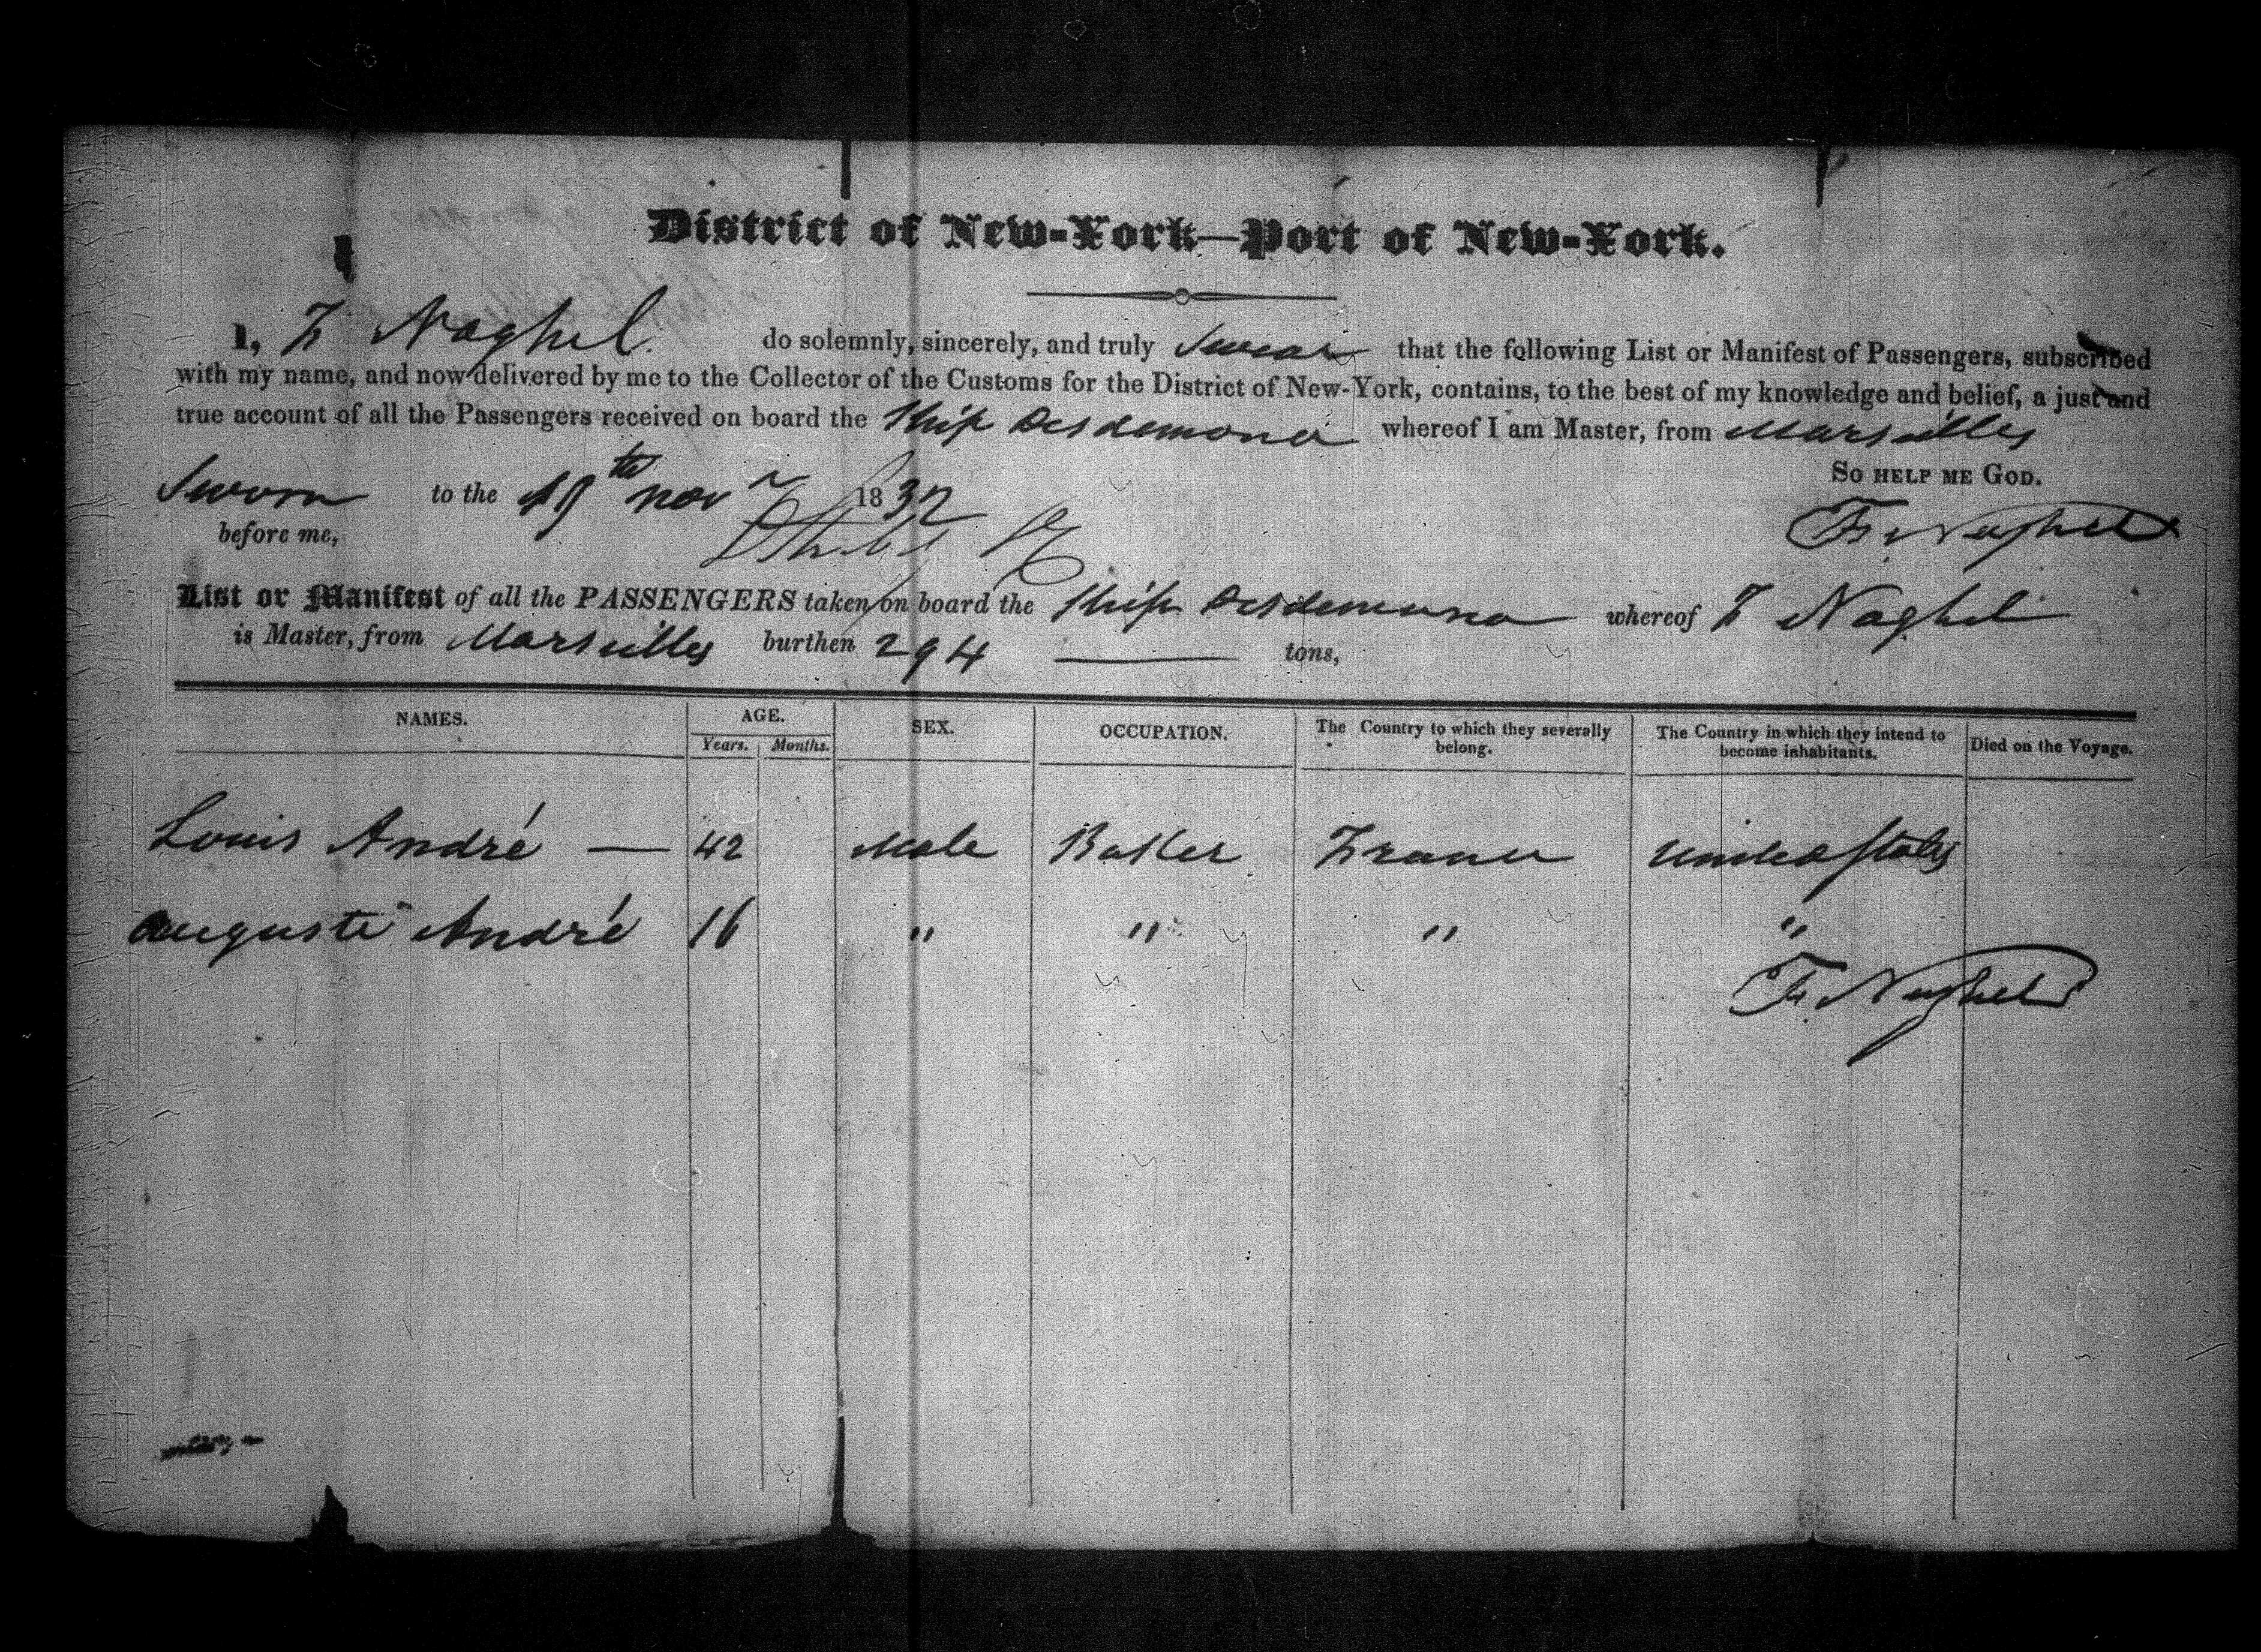 District of New-York—Port of New-York.
I, F Naghel do solemnly, sincerely, and truly Swear that the following List or Manifest of Passengers, subscribed
with my name, and now delivered by me to the Collector of the Customs for the District of New-York, contains, to the best of my knowledge and belief, a just and
true account of all the Passengers received on board the Ship Desdemona whereof I am Master, from Marseilles
So help me God.
Sworn to the 19th Nov 1832
before me,
Fr Naghel
List or Manifest of all the PASSENGERS taken on board the Ship Desdemona whereof F Naghel
is Master, from Marseilles burthen 294 — tons,
NAMES. AGE. Years. Months. SEX. OCCUPATION. The Country to which they severally belong. The Country in which they intend to become inhabitants. Died on the Voyage.
Louis André — 42 Male Baker France United States
Auguste André 16 " " " "
Fr Naghel